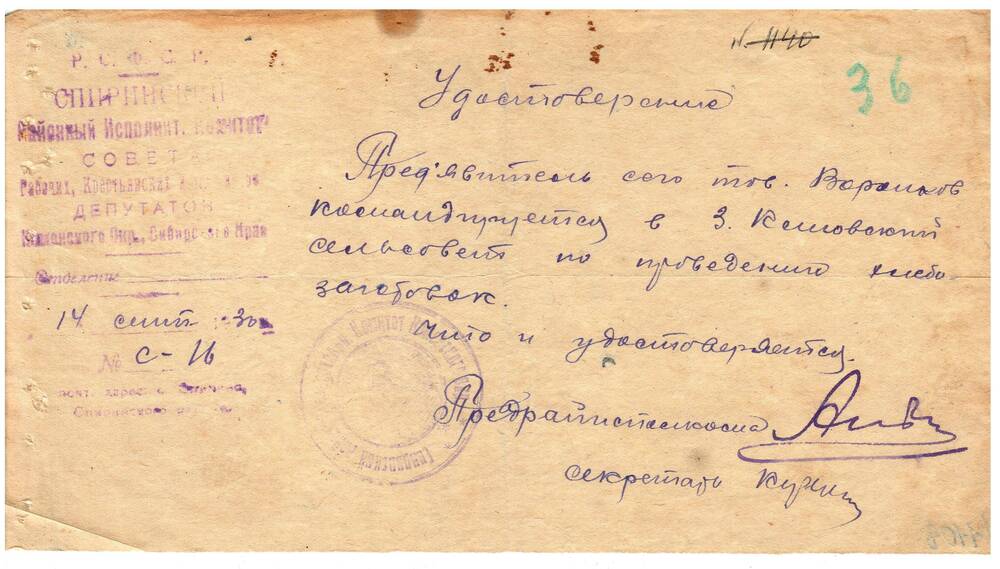 Р. С. Ф. С. Р.
СПИРИНСКИЙ
Районный Исполнит. Комитет
СОВЕТА
Рабочих, Крестьянских
ДЕПУТАТОВ
Каменского Окр., Сибирского Края
Отделение
14 сент 30
№ С-16
почт. адрес: с. Спирино,
Спиринского
N 1140
36
Удостоверение
Пред'явитель сего тов. Воронков
командируется в З.
сельсовет по проведению хлебо-
заготовок.
Что и удостоверяется.
Предрайисполкома
секретарь